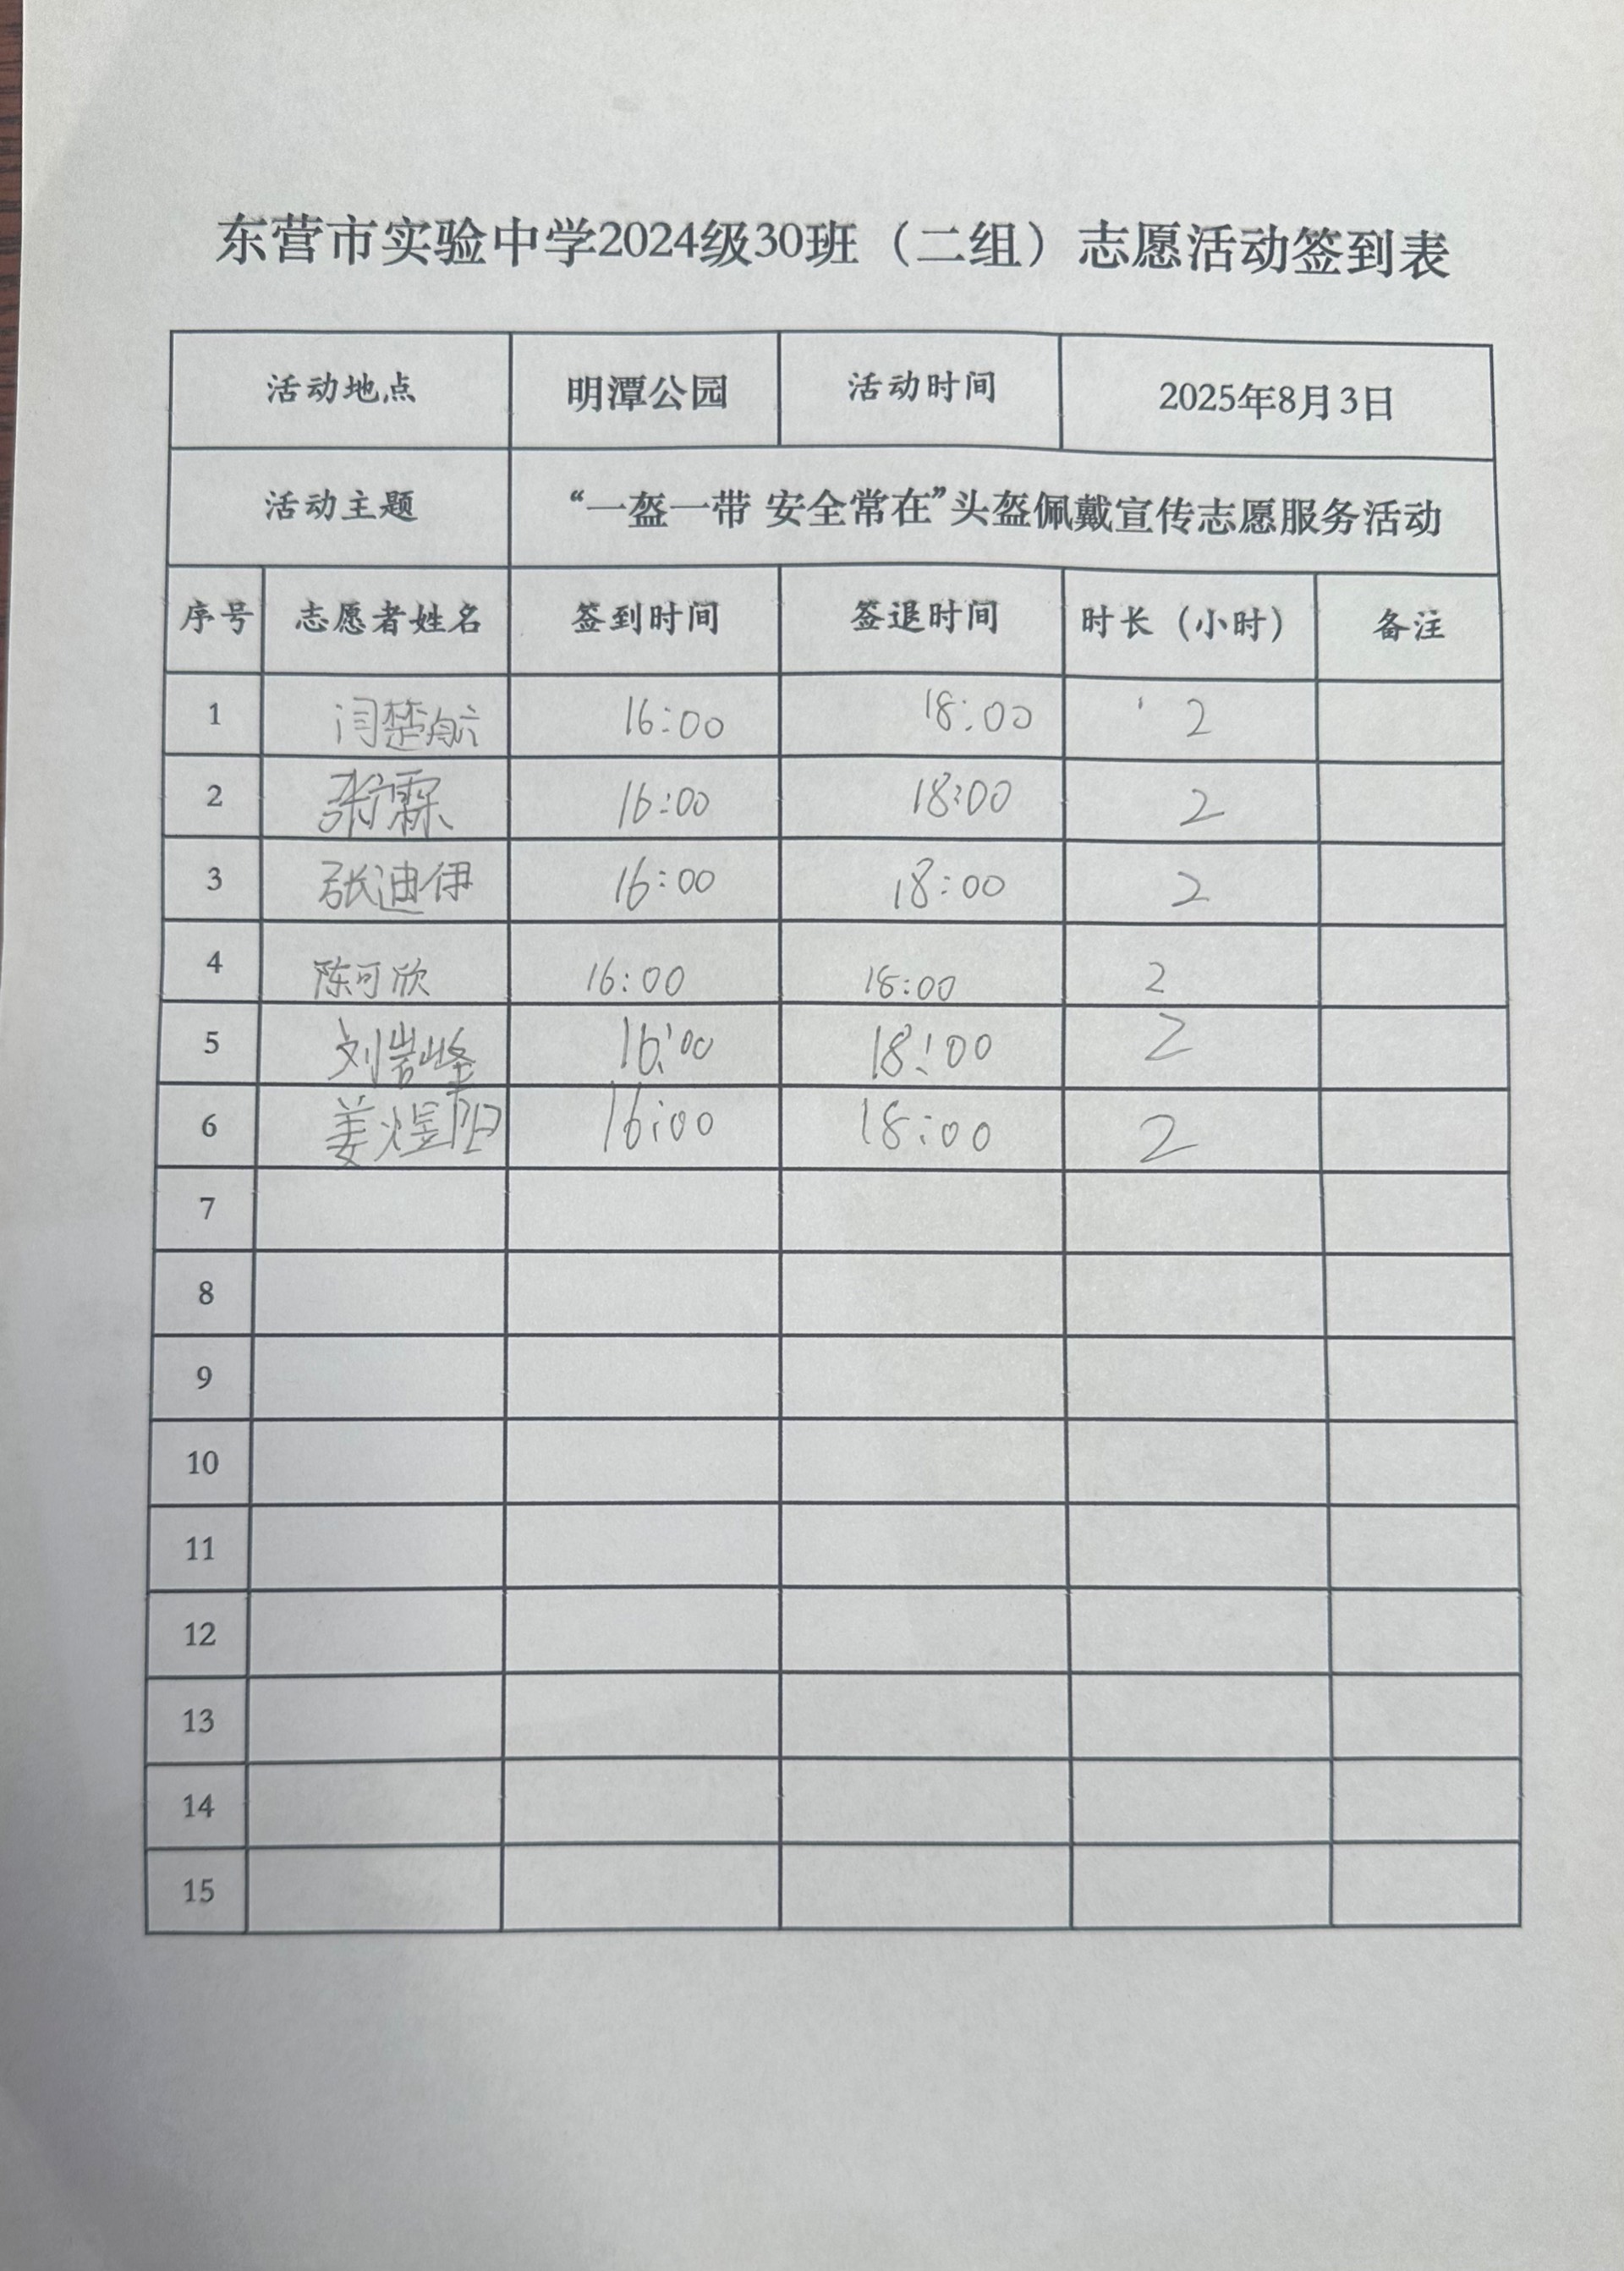 东营市实验中学2024级30班（二组）志愿活动签到表
活动地点 明潭公园 活动时间 2025年8月3日
活动主题 “一盔一带 安全常在”头盔佩戴宣传志愿服务活动
序号 志愿者姓名 签到时间 签退时间 时长（小时） 备注
1 闫楚航 16:00 18:00 2
2 16:00 18:00 2
3 张迪伊 16:00 18:00 2
4 陈可欣 16:00 18:00 2
5 刘岩峰 16:00 18:00 2
6 姜煜阳 16:00 18:00 2
7
8
9
10
11
12
13
14
15